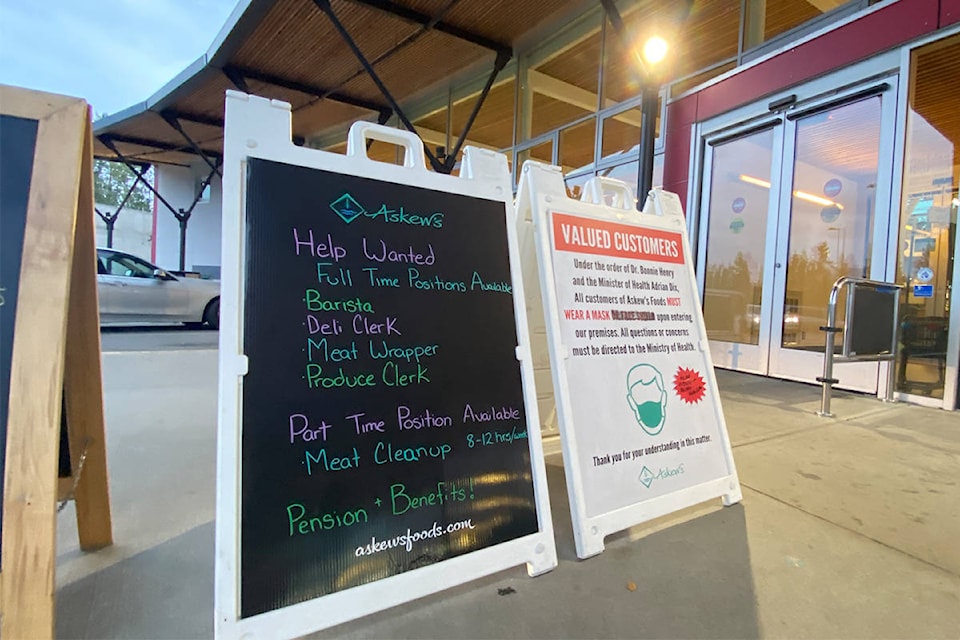 Askew's
Help Wanted
Full Time Positions Available
·Barista
·Deli Clerk
·Meat Wrapper
·Produce Clerk
Part Time Position Available
·Meat Cleanup 8-12 hrs/week
Pension + Benefits!
askewsfoods.com
VALUED CUSTOMERS
Under the order of Dr. Bonnie Henry
and the Minister of Health Adrian Dix,
All customers of Askew's Foods MUST
WEAR A MASK upon entering
our premises. All questions or concerns
must be directed to the Ministry of Health.
Thank you for your understanding in this matter.
Askew's